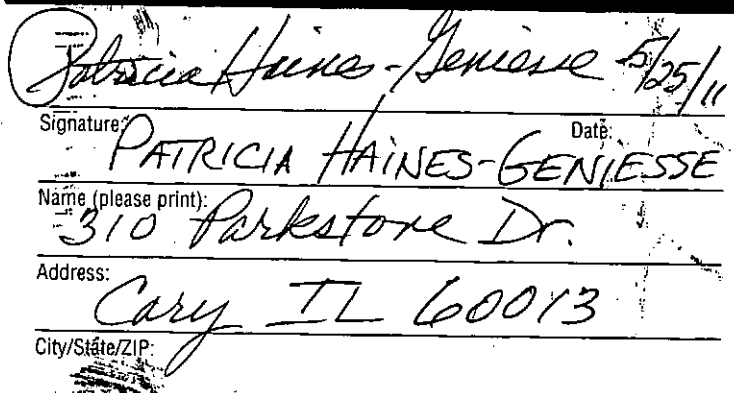 Patricia Haines-Geniesse 5/25/11
Signature: Date:
PATRICIA HAINES-GENIESSE
Name (please print):
310 Parkstone Dr.
Address:
Cary IL 60013
City/State/ZIP: